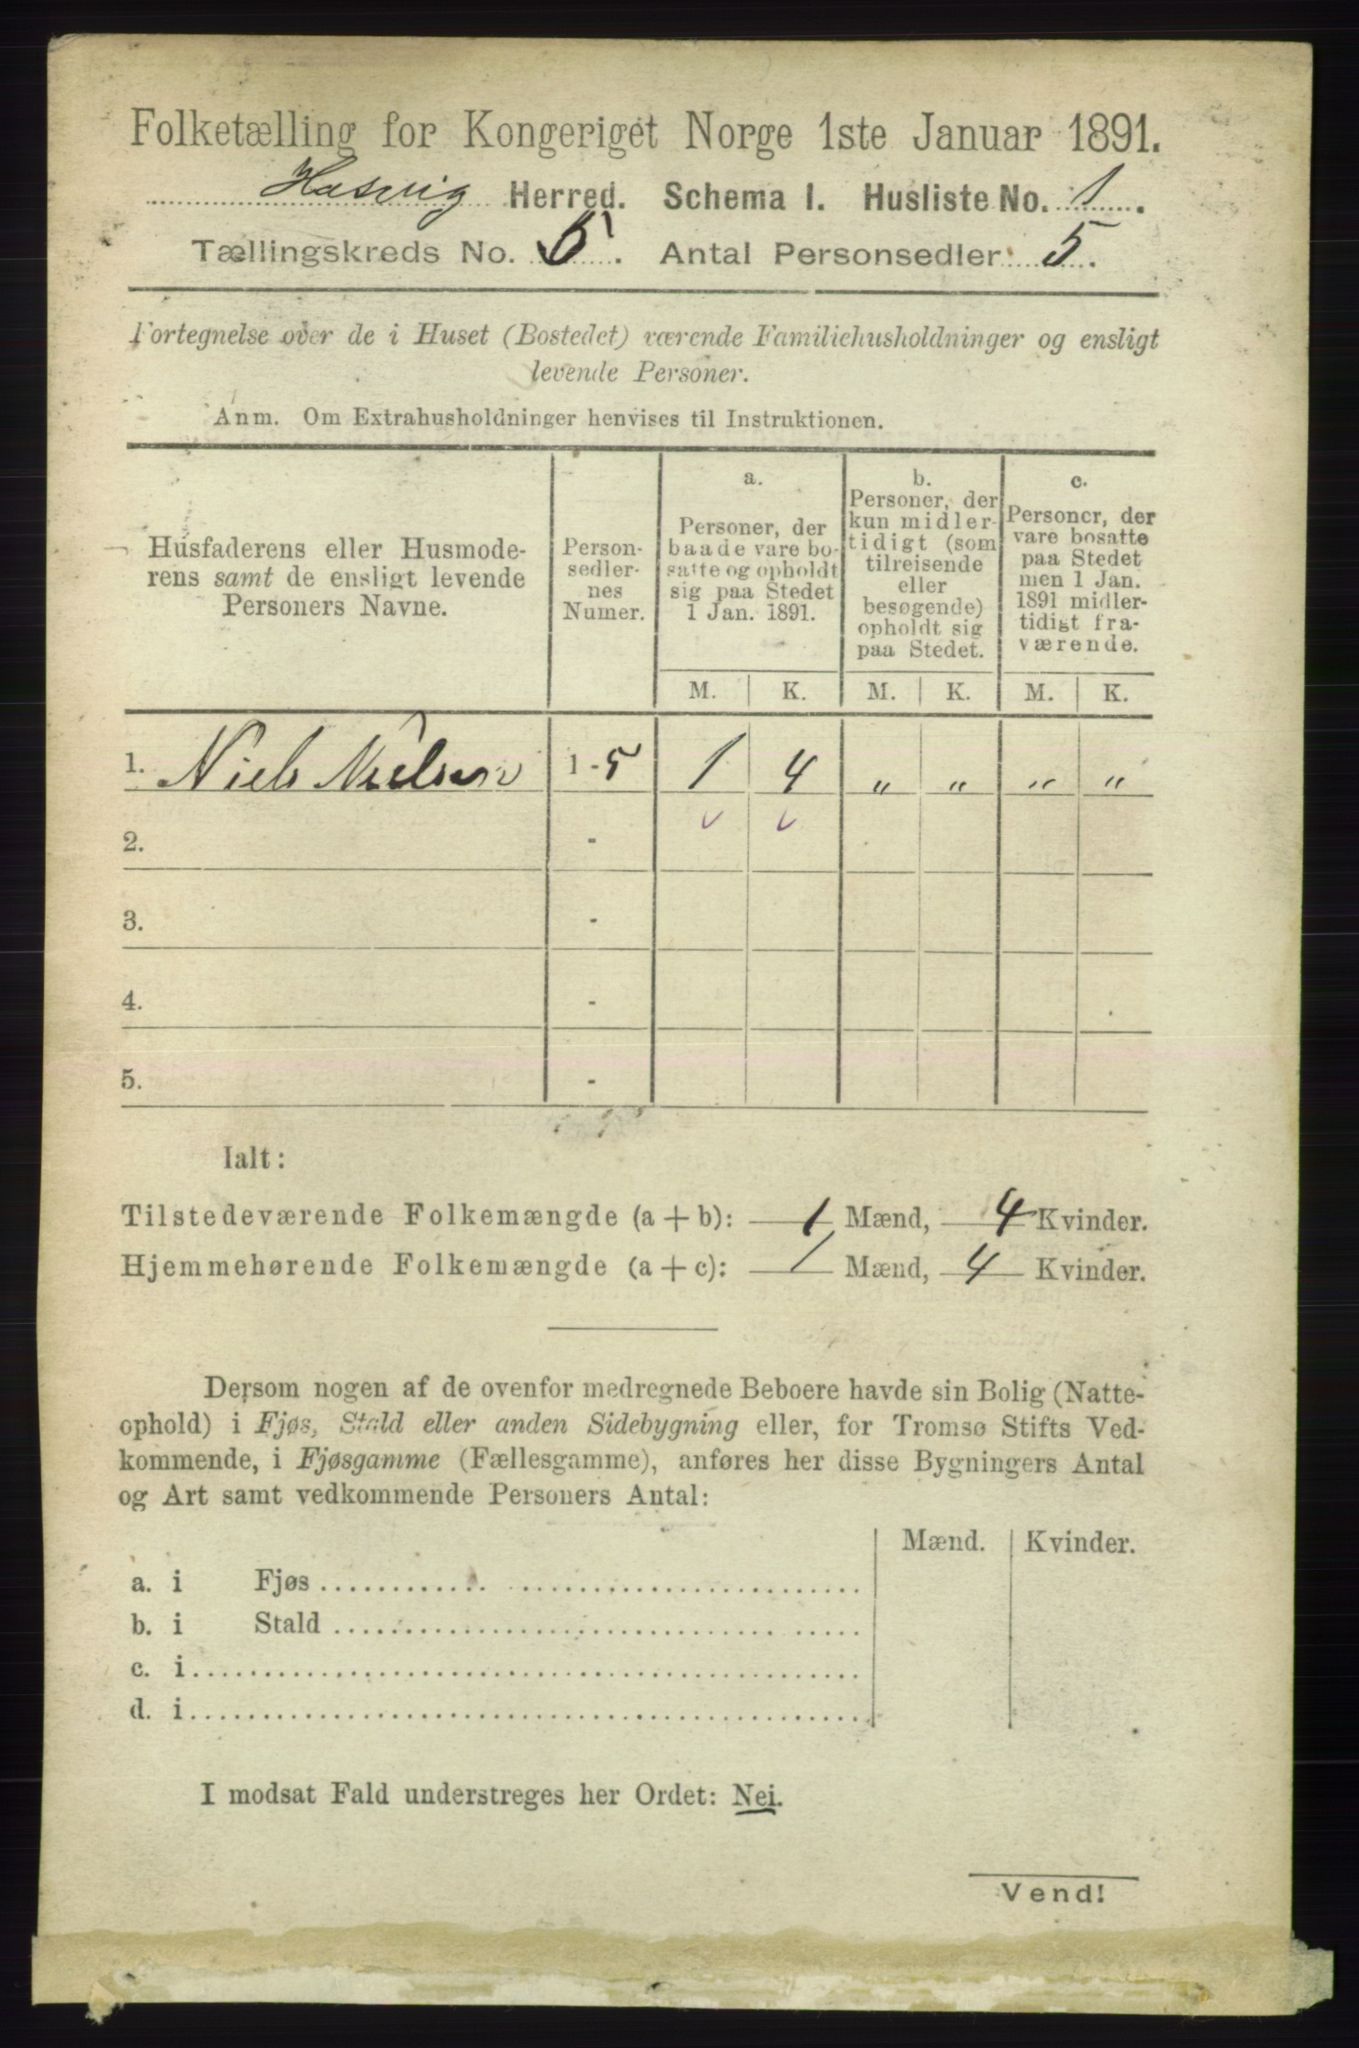 Folketælling for Kongeriget Norge 1ste Januar 1891.
Hasvig Herred. Schema I. Husliste No. 1.
Tællingskreds No. 5. Antal Personsedler 5.
Fortegnelse over de i Huset (Bostedet) værende Familiehusholdninger og ensligt
levende Personer.
Anm. Om Extrahusholdninger henvises til Instruktionen.
Husfaderens eller Husmode-
rens samt de ensligt levende
Personers Navne.
Person-
sedler-
nes
Numer.
a.
Personer, der
baade vare bo-
satte og opholdt
sig paa Stedet
1 Jan. 1891.
b.
Personer, der
kun midler-
tidigt (som
tilreisende
eller
besøgende)
opholdt sig
paa Stedet.
c.
Personer, der
vare bosatte
paa Stedet
men 1 Jan.
1891 midler-
tidigt fra-
værende.
M. K. M. K. M. K.
1. Niels Nielsen 1-5 1 4 „ „ „ „
2. -
3. -
4. -
5. -
Ialt:
Tilstedeværende Folkemængde (a + b): 1 Mænd, 4 Kvinder.
Hjemmehørende Folkemængde (a + c): 1 Mænd, 4 Kvinder.
Dersom nogen af de ovenfor medregnede Beboere havde sin Bolig (Natte-
ophold) i Fjøs, Stald eller anden Sidebygning eller, for Tromsø Stifts Ved-
kommende, i Fjøsgamme (Fællesgamme), anføres her disse Bygningers Antal
og Art samt vedkommende Personers Antal:
Mænd. Kvinder.
a. i Fjøs
b. i Stald
c. i
d. i
I modsat Fald understreges her Ordet: Nei.
Vend!